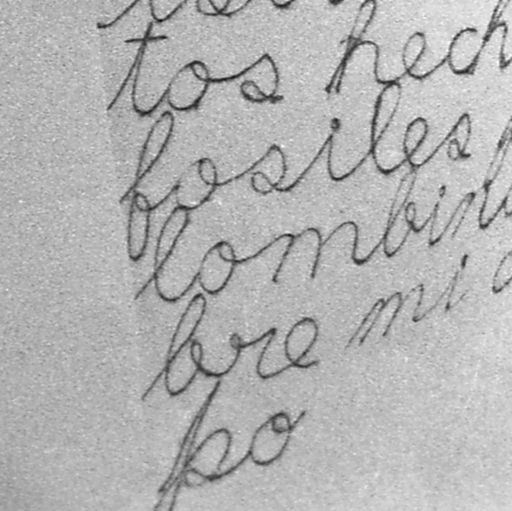 tos hech
fosiles
lombri
bre mi
po